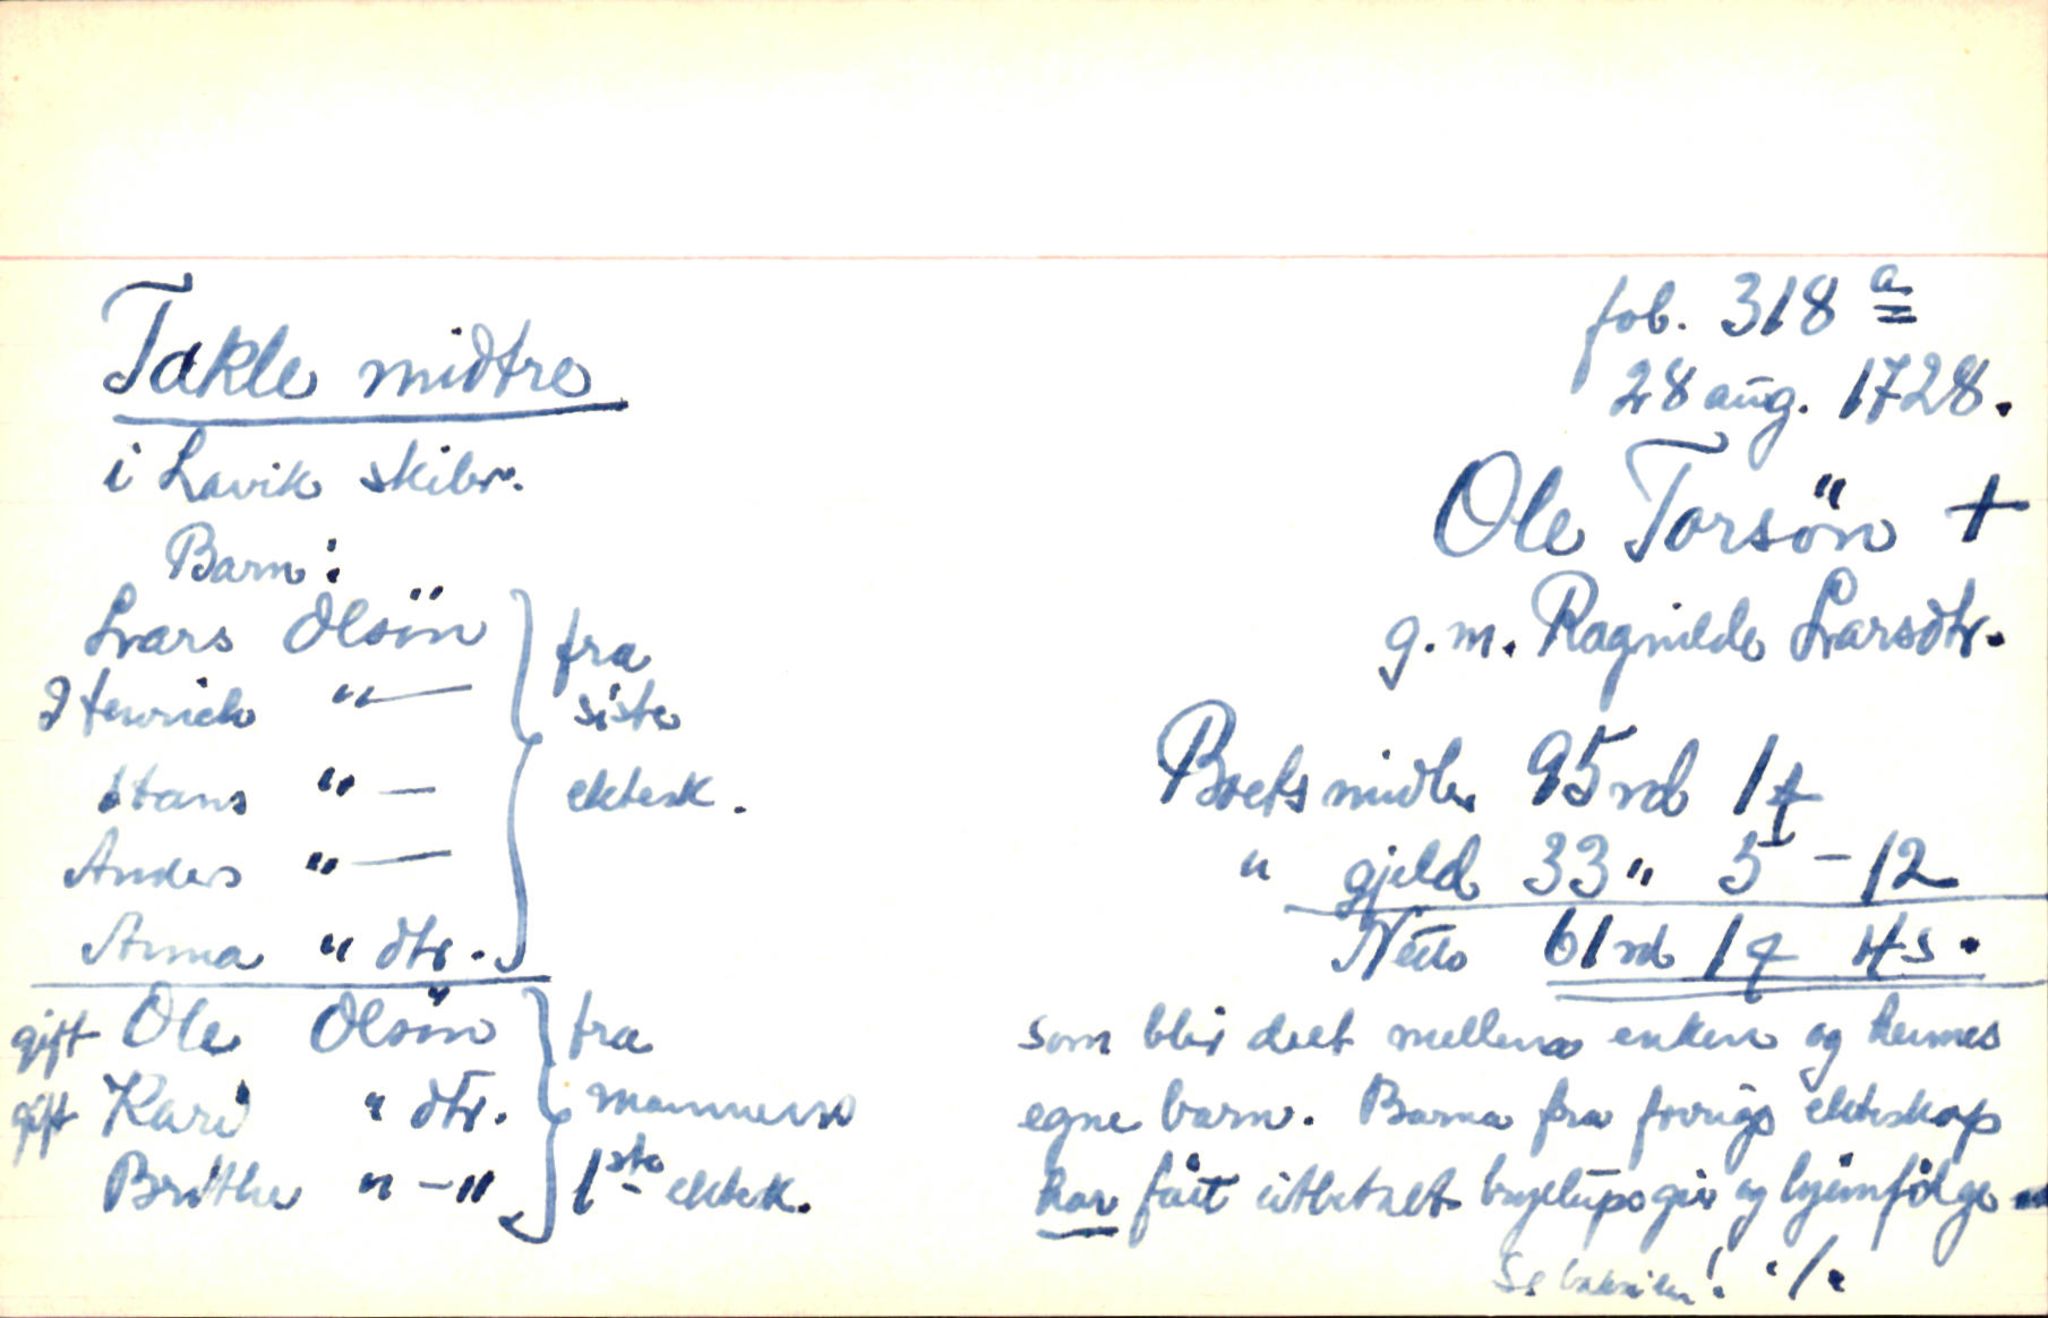 Takle midtre
i Lavik skibr.
Barn:
Lars Olsön
Henrich "—
Hans "—
Anders "—
Anna " dtr.
fra
siste
ektesk.
gift Ole Olsön
gift Kari " dtr.
Brithe " – "
fra
mannens
1ste ektesk.
fol. 318 a
28 aug. 1728.
Ole Torsön +
g.m. Ragnilde Larsdtr.
Boets midler 95 rd 1
" gjeld 33 " 5 – 12
Netto 61 rd 1 4 s.
som blir delt mellem enken og hennes
egne barn. Barna fra forrige ekteskap
har fåt utbetalt bryllupsgir og hjemfölge
Se baksiden! ./.